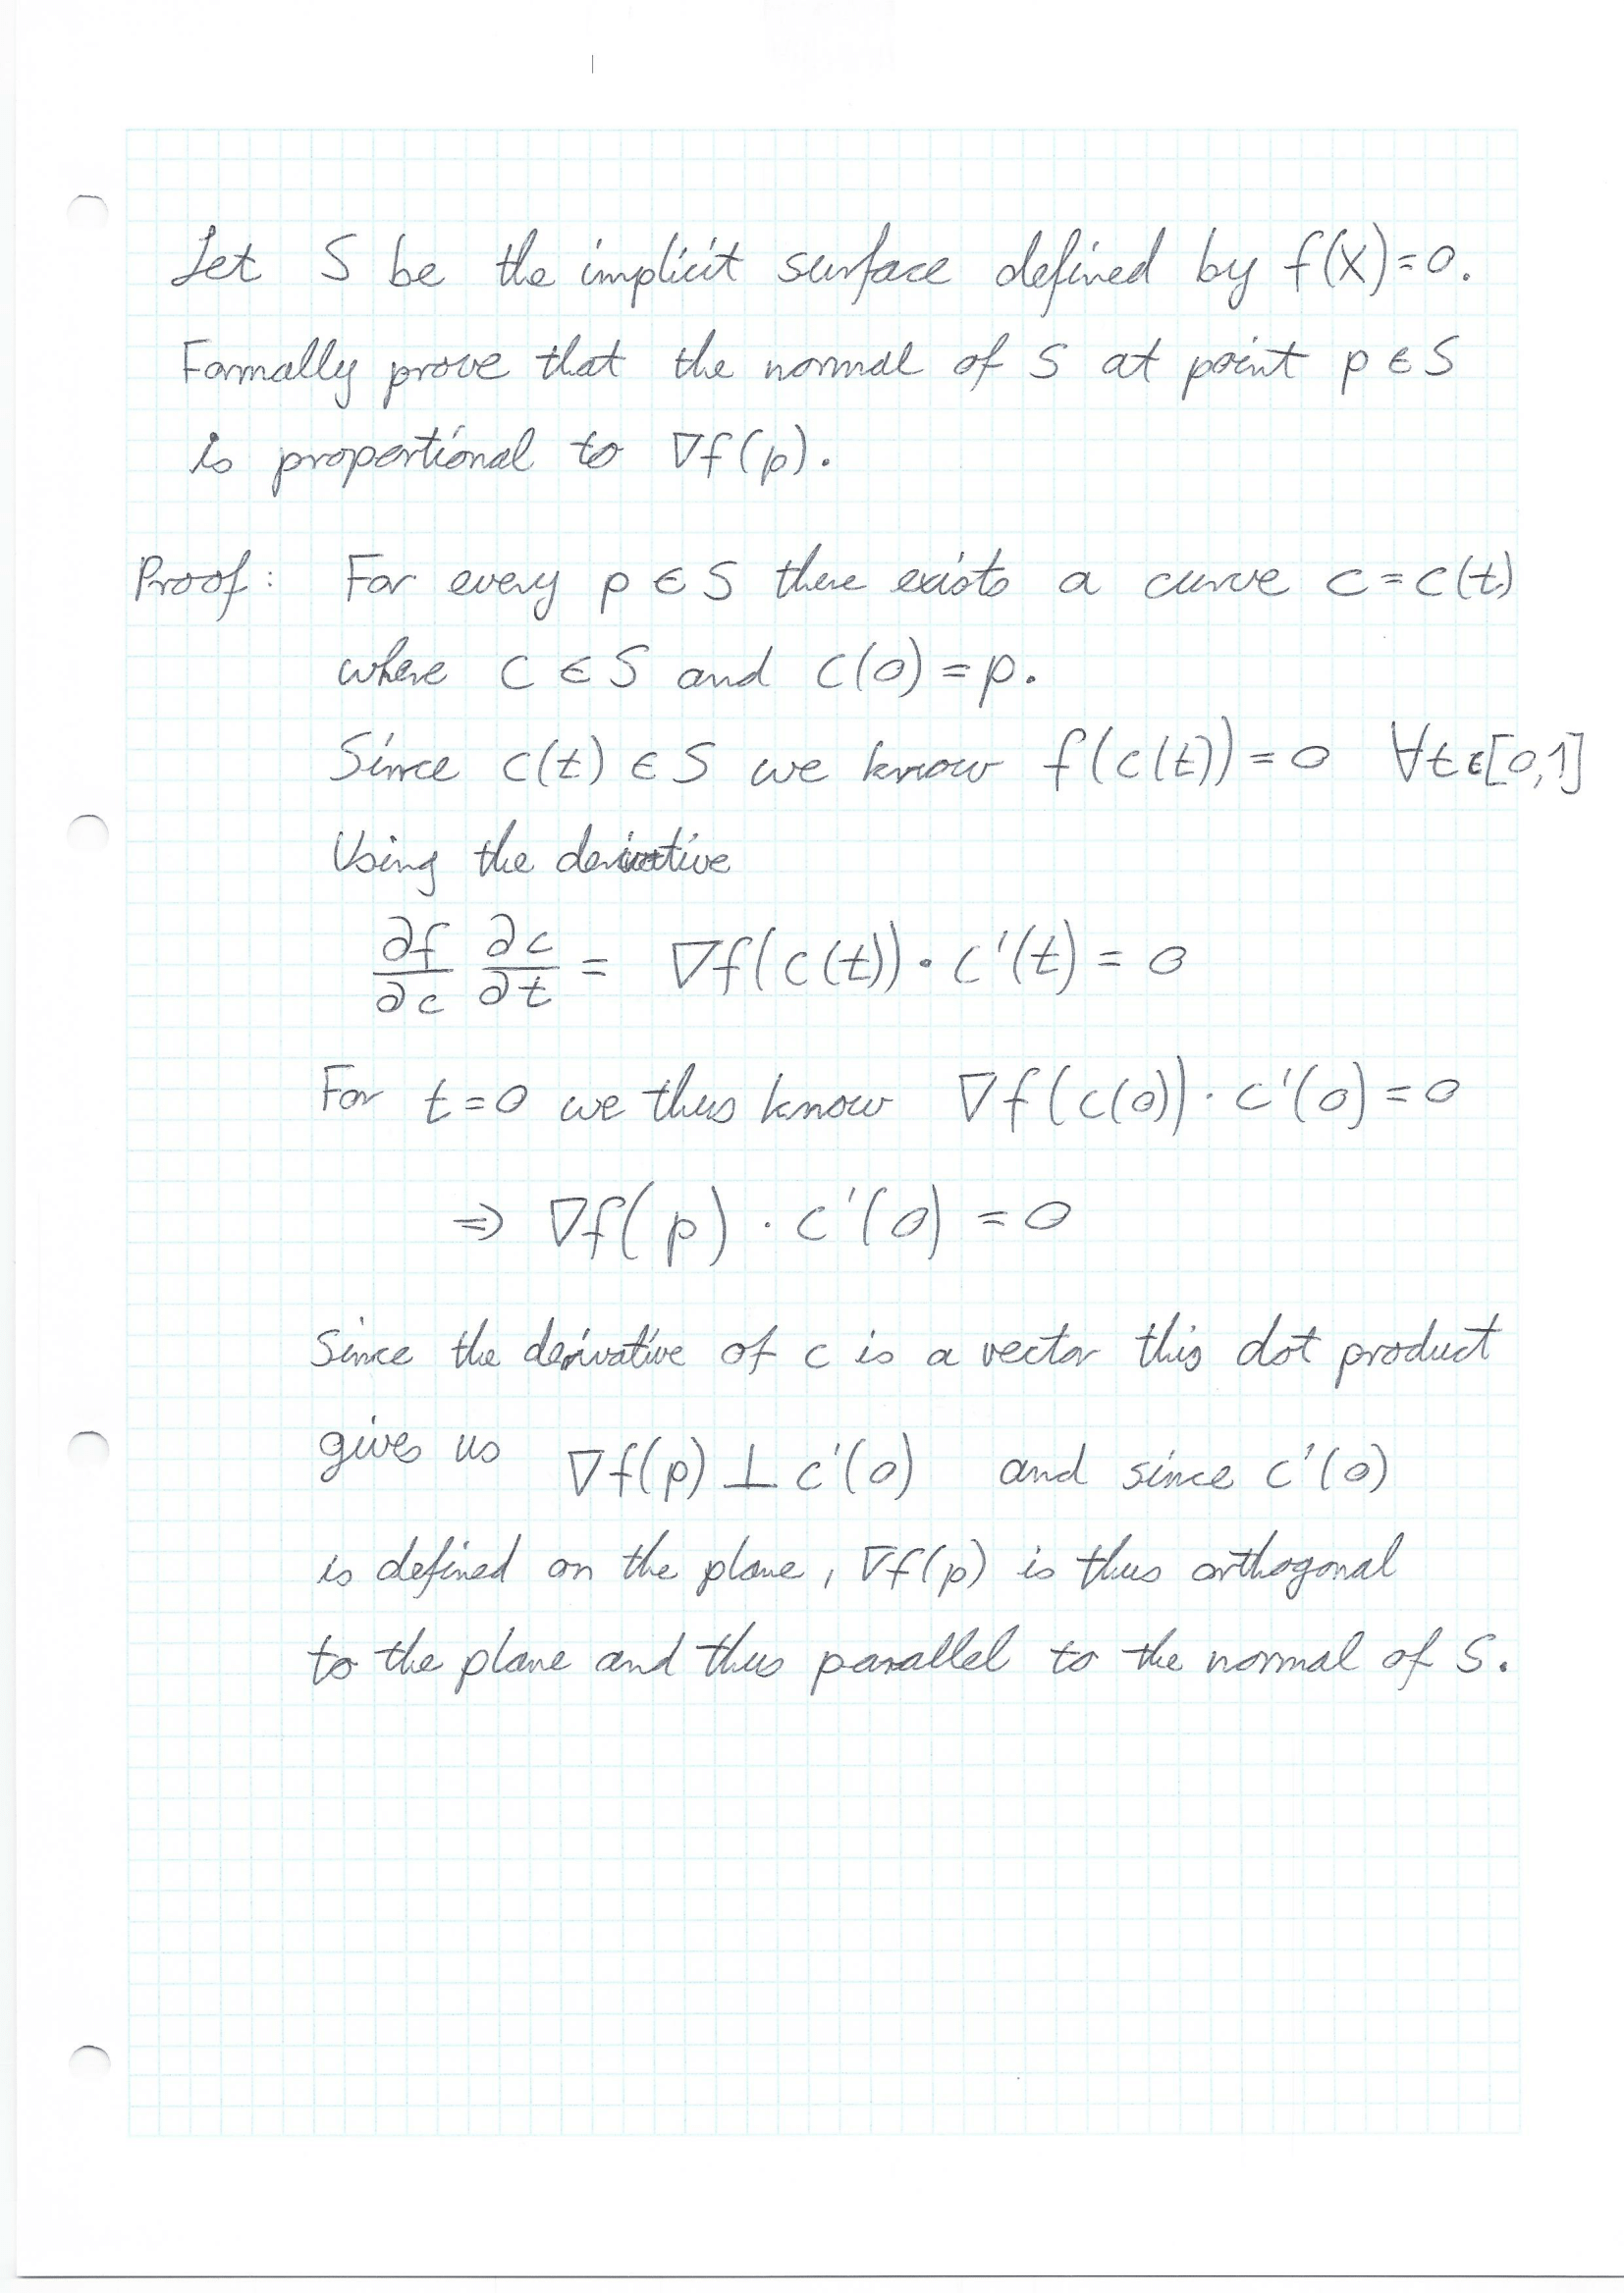 Let S be the implicit surface defined by f(X)=0.
Formally prove that the normal of S at point p ∈ S
is proportional to ∇f(p).
Proof: For every p ∈ S there exists a curve c = c(t)
where c ∈ S and c(0) = p.
Since c(t) ∈ S we know f(c(t)) = 0 ∀t∈[0,1]
Using the derivative
∂f/∂c ∂c/∂t = ∇f(c(t)) · c'(t) = 0
For t=0 we thus know ∇f(c(0)) · c'(0) = 0
⇒ ∇f(p) · c'(0) = 0
Since the derivative of c is a vector this dot product
gives us ∇f(p) ⊥ c'(0) and since c'(0)
is defined on the plane, ∇f(p) is thus orthogonal
to the plane and thus parallel to the normal of S.